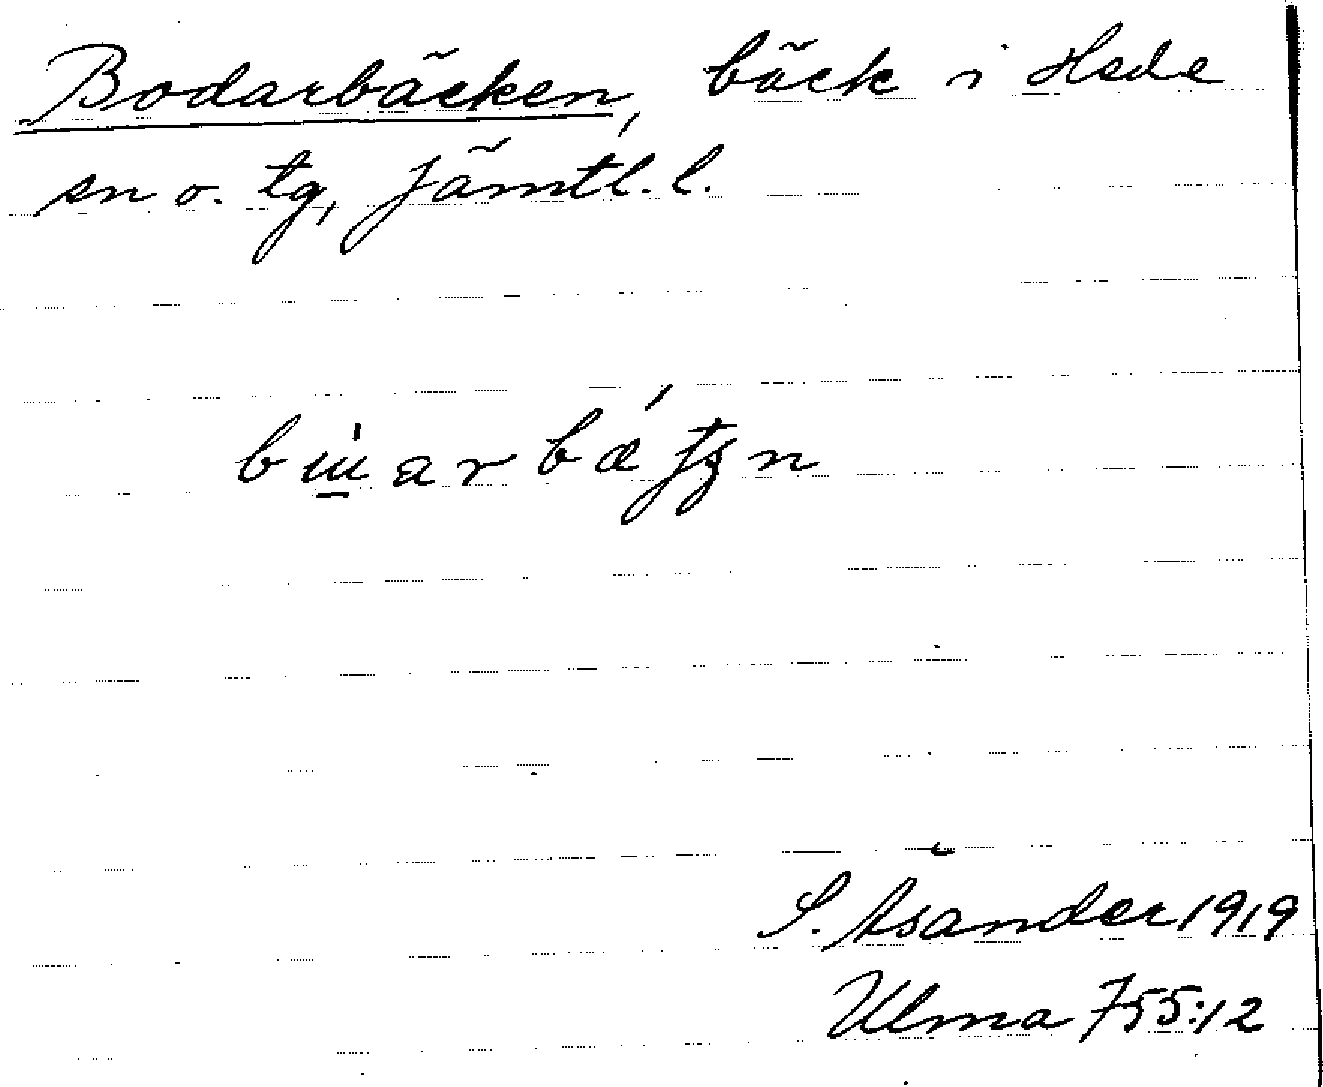 Bodarbäcken, bäck i Hede
sn o. tg, Jämtl. l.
S. Åsander 1919
Ulma 755:12